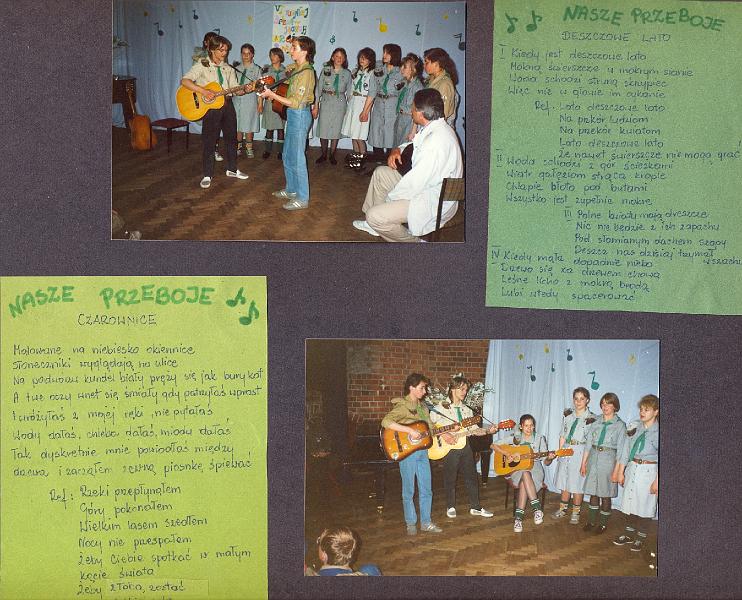 NASZE PRZEBOJE
DESZCZOWE LATO
I Kiedy jest deszczowe lato
Mokną świerszcze w mokrym sianie
Woda schodzi struną skrzypiec
Więc nie w głowie im cykanie
Ref. Lato deszczowe lato
Na przekór ludziom
Na przekór kwiatom
Lato deszczowe lato
Że nawet świerszcze nie mogą grać
II Woda schodzi z gór ścieżkami
Wiatr gałęziom strąca krople
Chlapie błoto pod butami
Wszystko jest zupełnie mokre
III Polne kwiaty mają dreszcze
Nic nie będzie z ich zapachu
Pod słomianym dachem szopy
Deszcz nas dzisiaj trzymał
w szachu
IV Kiedy mgła dopadnie niebo
Drzewo się za drzewem chowa
Leśne licho z mokrą brodą
Lubi wtedy spacerować
NASZE PRZEBOJE
CZAROWNICE
Malowane na niebiesko okiennice
Słoneczniki wyglądają na ulice
Na podwórzu kundel biały pręży się jak bury kot
A twe oczy wnet się śmiały gdy patrzyłaś wprost
I wróżyłaś z mojej ręki, nie pytałaś
Wody dałaś, chleba dałaś, miodu dałaś
Tak dyskretnie mnie powiodłaś między
drzwa i zacząłem rzewną piosnkę śpiewać
Ref: Rzeki przepłynąłem
Góry pokonałem
Wielkim lasem szedłem
Nocy nie przespałem
Żeby Ciebie spotkać w małym
kącie świata
Żeby złoto, zostać